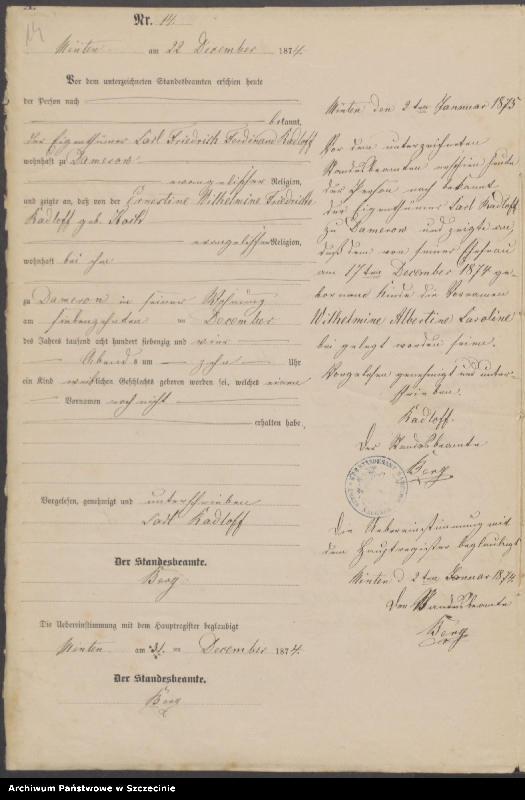 Nr. 14.
14
Minten am 22 December 1874.
Vor dem unterzeichneten Standesbeamten erschien heute
der Person nach
bekannt,
der Eigenthümer Carl Friedrich Ferdinand Radloff
wohnhaft zu Damerow
evangelischer Religion,
und zeigte an, daß von der Ernestine Wilhelmine Friedricke
Radloff geb. Koch
evangelischer Religion,
wohnhaft bei ihm
zu Damerow in seiner Wohnung
am siebenzehnten ten December
des Jahres tausend acht hundert siebenzig und vier
Abends um zehn Uhr
ein Kind weiblichen Geschlechts geboren worden sei, welches einen
Vornamen noch nicht
erhalten habe
Vorgelesen, genehmigt und unterschrieben
Carl Radloff
Der Standesbeamte.
Berg
Die Uebereinstimmung mit dem Hauptregister beglaubigt
Minten am 31. ten December 1874.
Der Standesbeamte.
Berg
Minten den 2ten Januar 1875
Vor dem unterzeichneten
Standesbeamten erschien heute
der Person nach bekannt
der Eigenthümer Carl Radloff
zu Damerow und zeigte an,
daß dem von seiner Ehefrau
am 17ten December 1874 ge-
bornene Kinde die Vornamen
Wilhelmine Albertine Caroline
bei gelegt worden seien.
Vorgelesen genehmigt und unter-
schrieben.
Radloff.
Der Standesbeamte
Berg
Die Uebereinstimmung mit
dem Hauptregister beglaubigt
Minten d 2ten Januar 1874
Der Standesbeamte
Berg
Archiwum Państwowe w Szczecinie